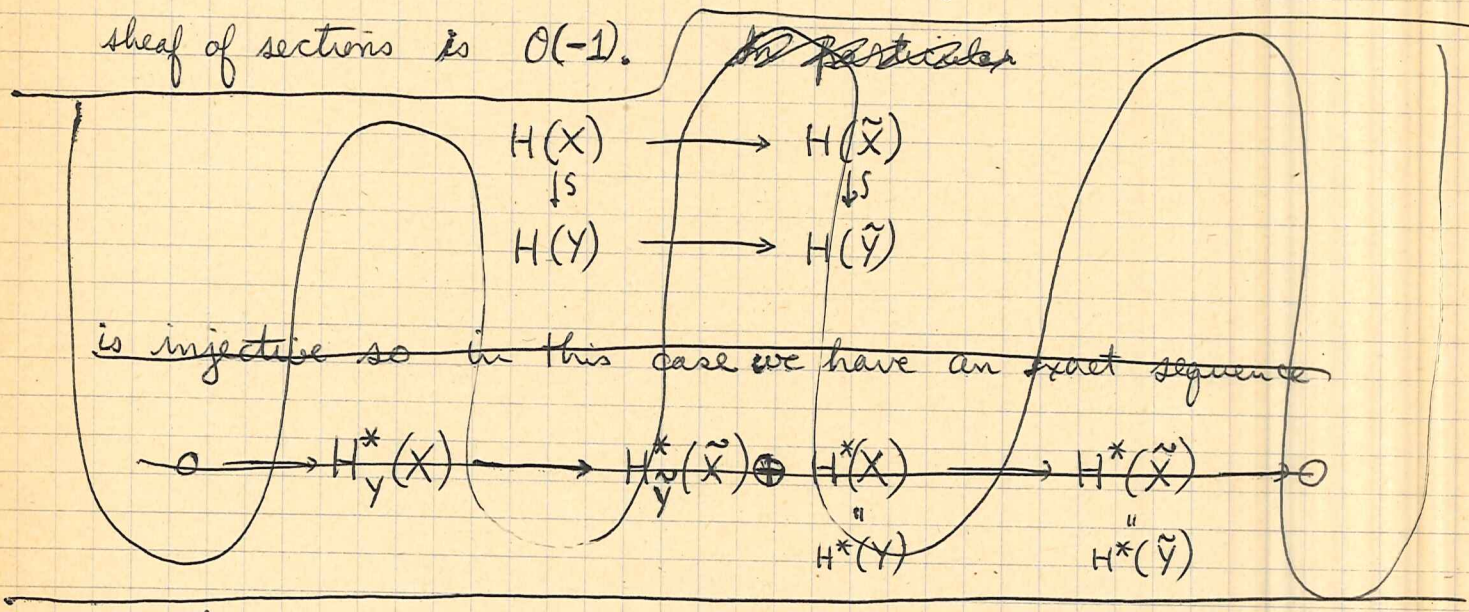 sheaf of sections is O(-1). In particular
H(X) ⟶ H(X̃)
↓S ↓S
H(Y) ⟶ H(Ỹ)
is injective so in this case we have an exact sequence
0 ⟶ H*_Y(X) ⟶ H*_Ỹ(X̃) ⊕ H*(X) ⟶ H*(X̃) ⟶ 0
" "
H*(Y) H*(Ỹ)